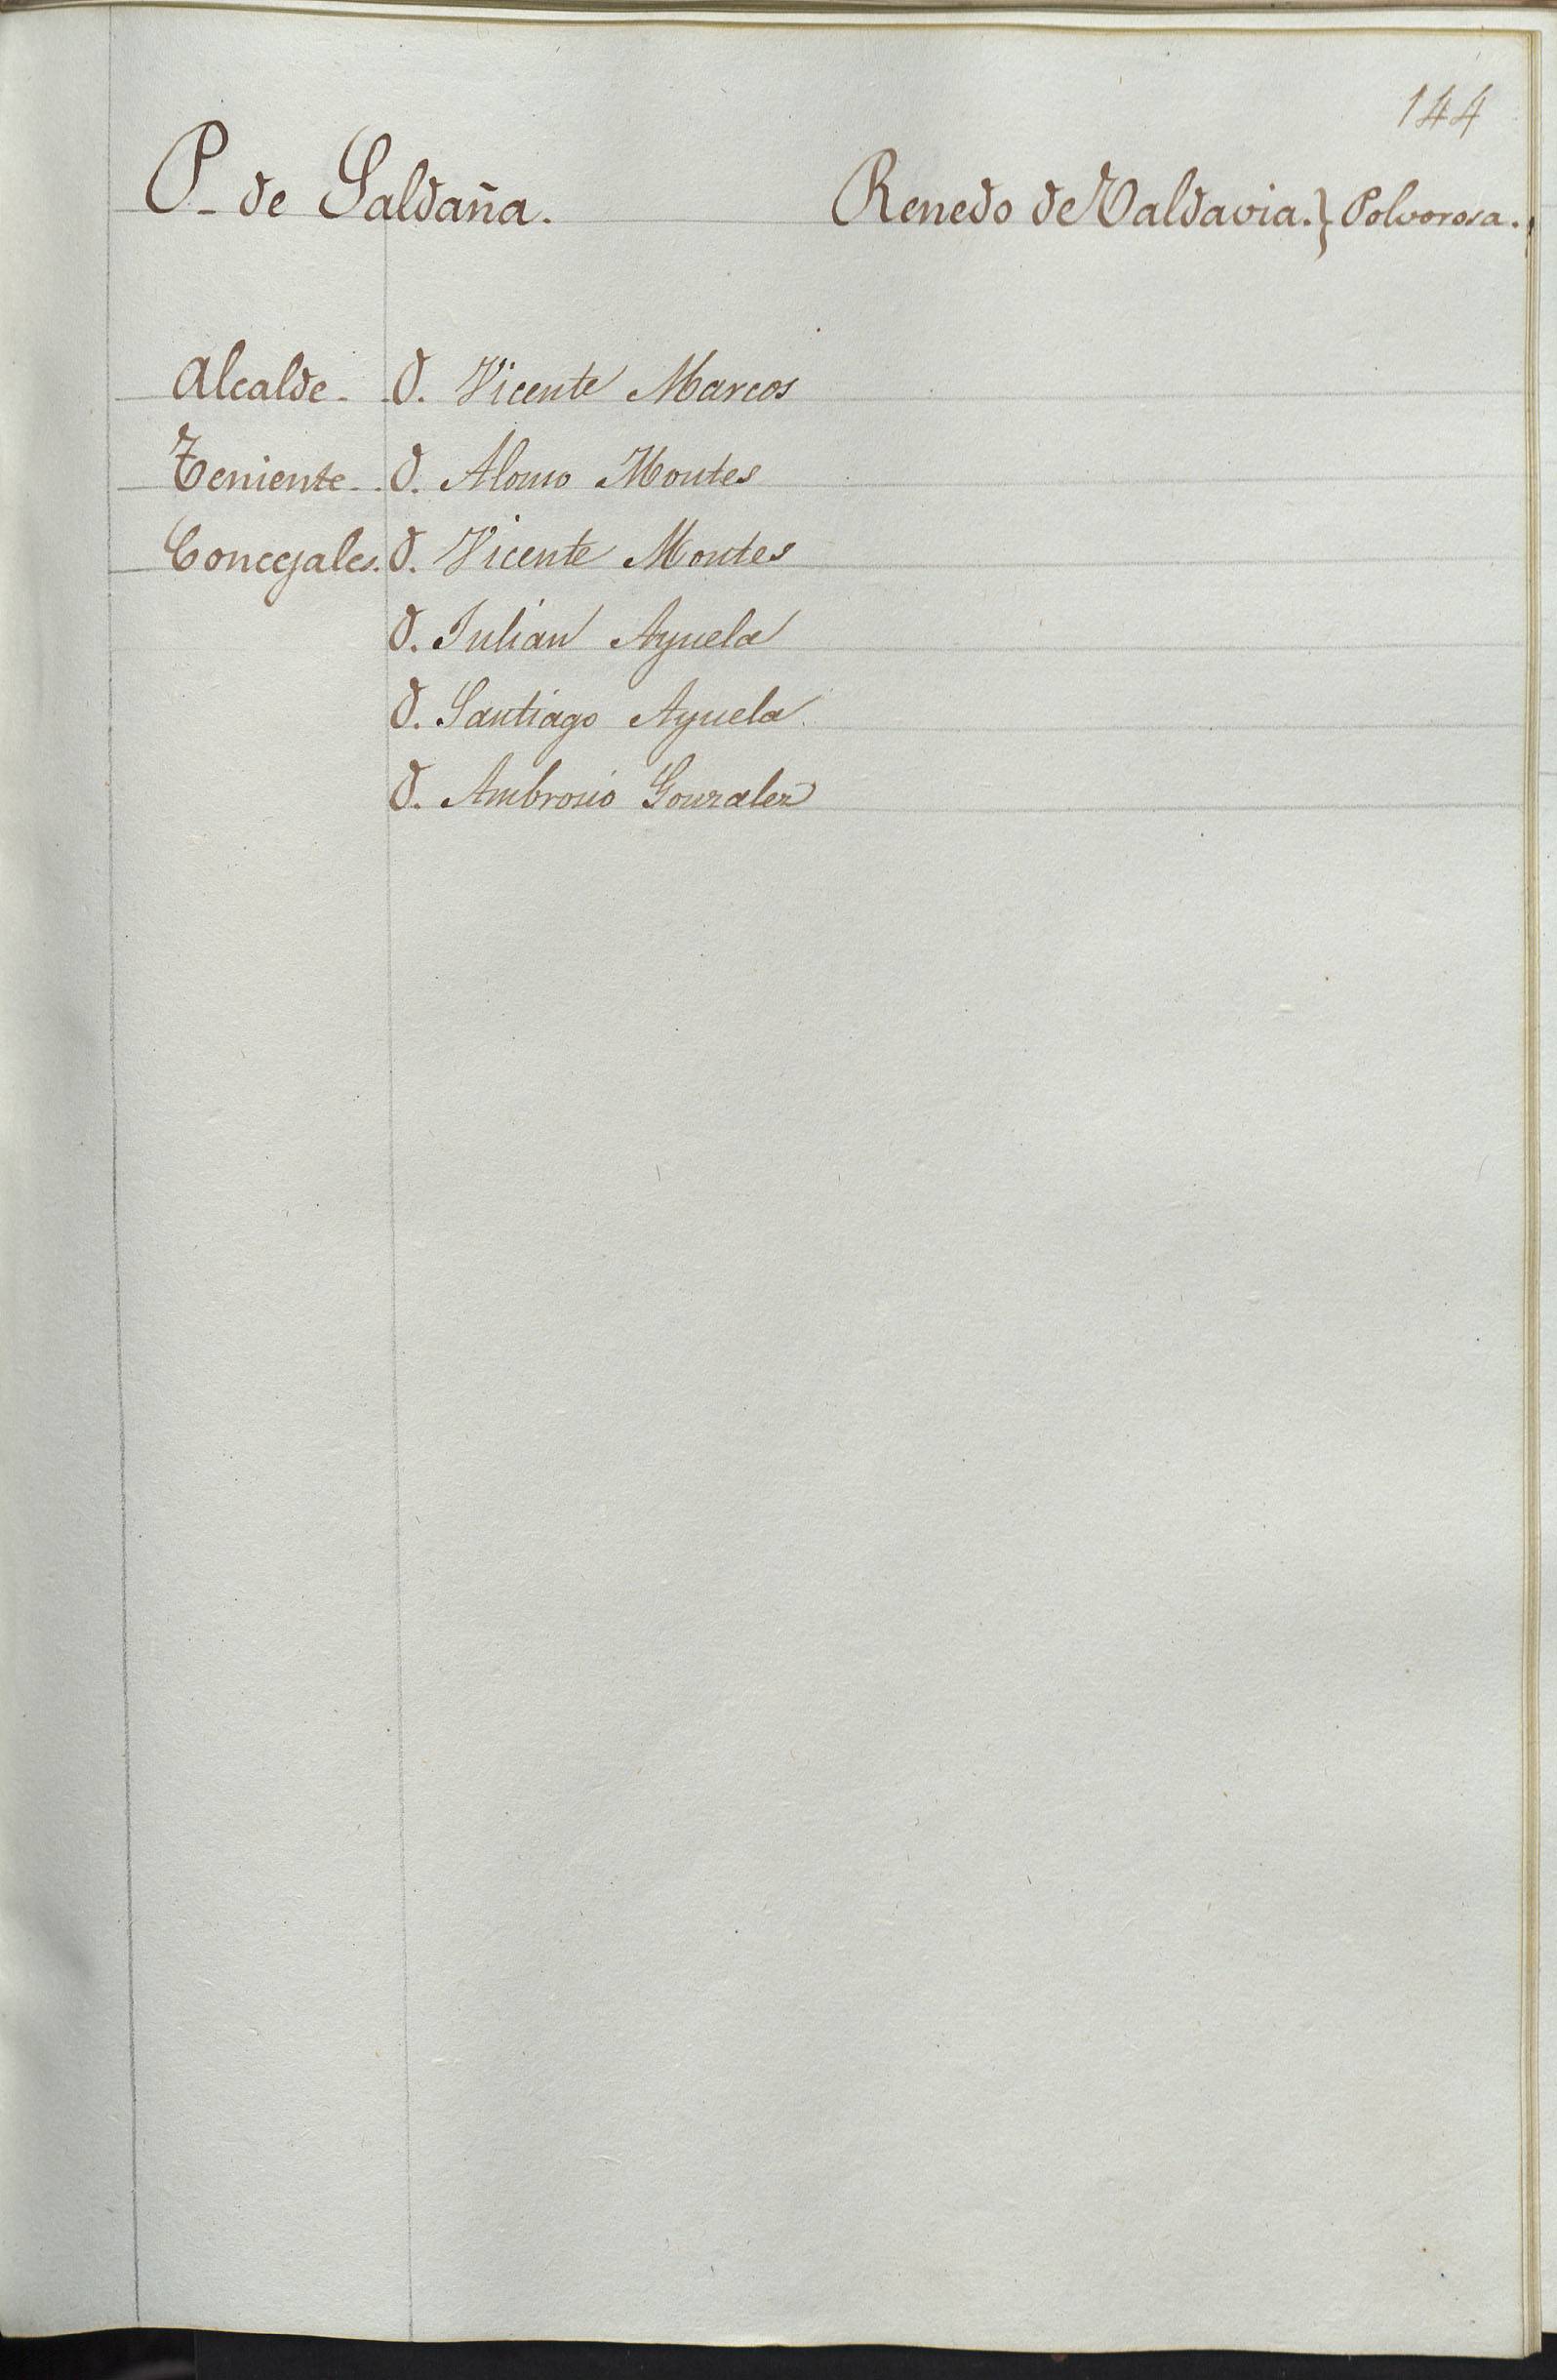 144
P. de Saldaña. Renedo de Valdavia.} Polvorosa.}
Alcalde. D. Vicente Marcos
Teniente. D. Alonso Montes
Concejales. D. Vicente Montes
D. Julian Ayuela
D. Santiago Ayuela
D. Ambrosio Gonzalez